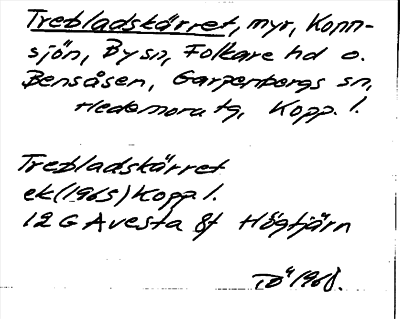 Trebladskärret, myr, Konn-
sjön, By sn, Folkare hd o.
Bensåsen, Garpenbergs sn,
Hedemora tg, Kopp. l.
Trebladskärret
ek (1965) Kopp l.
12 G Avesta 8f Högtjärn
1968.